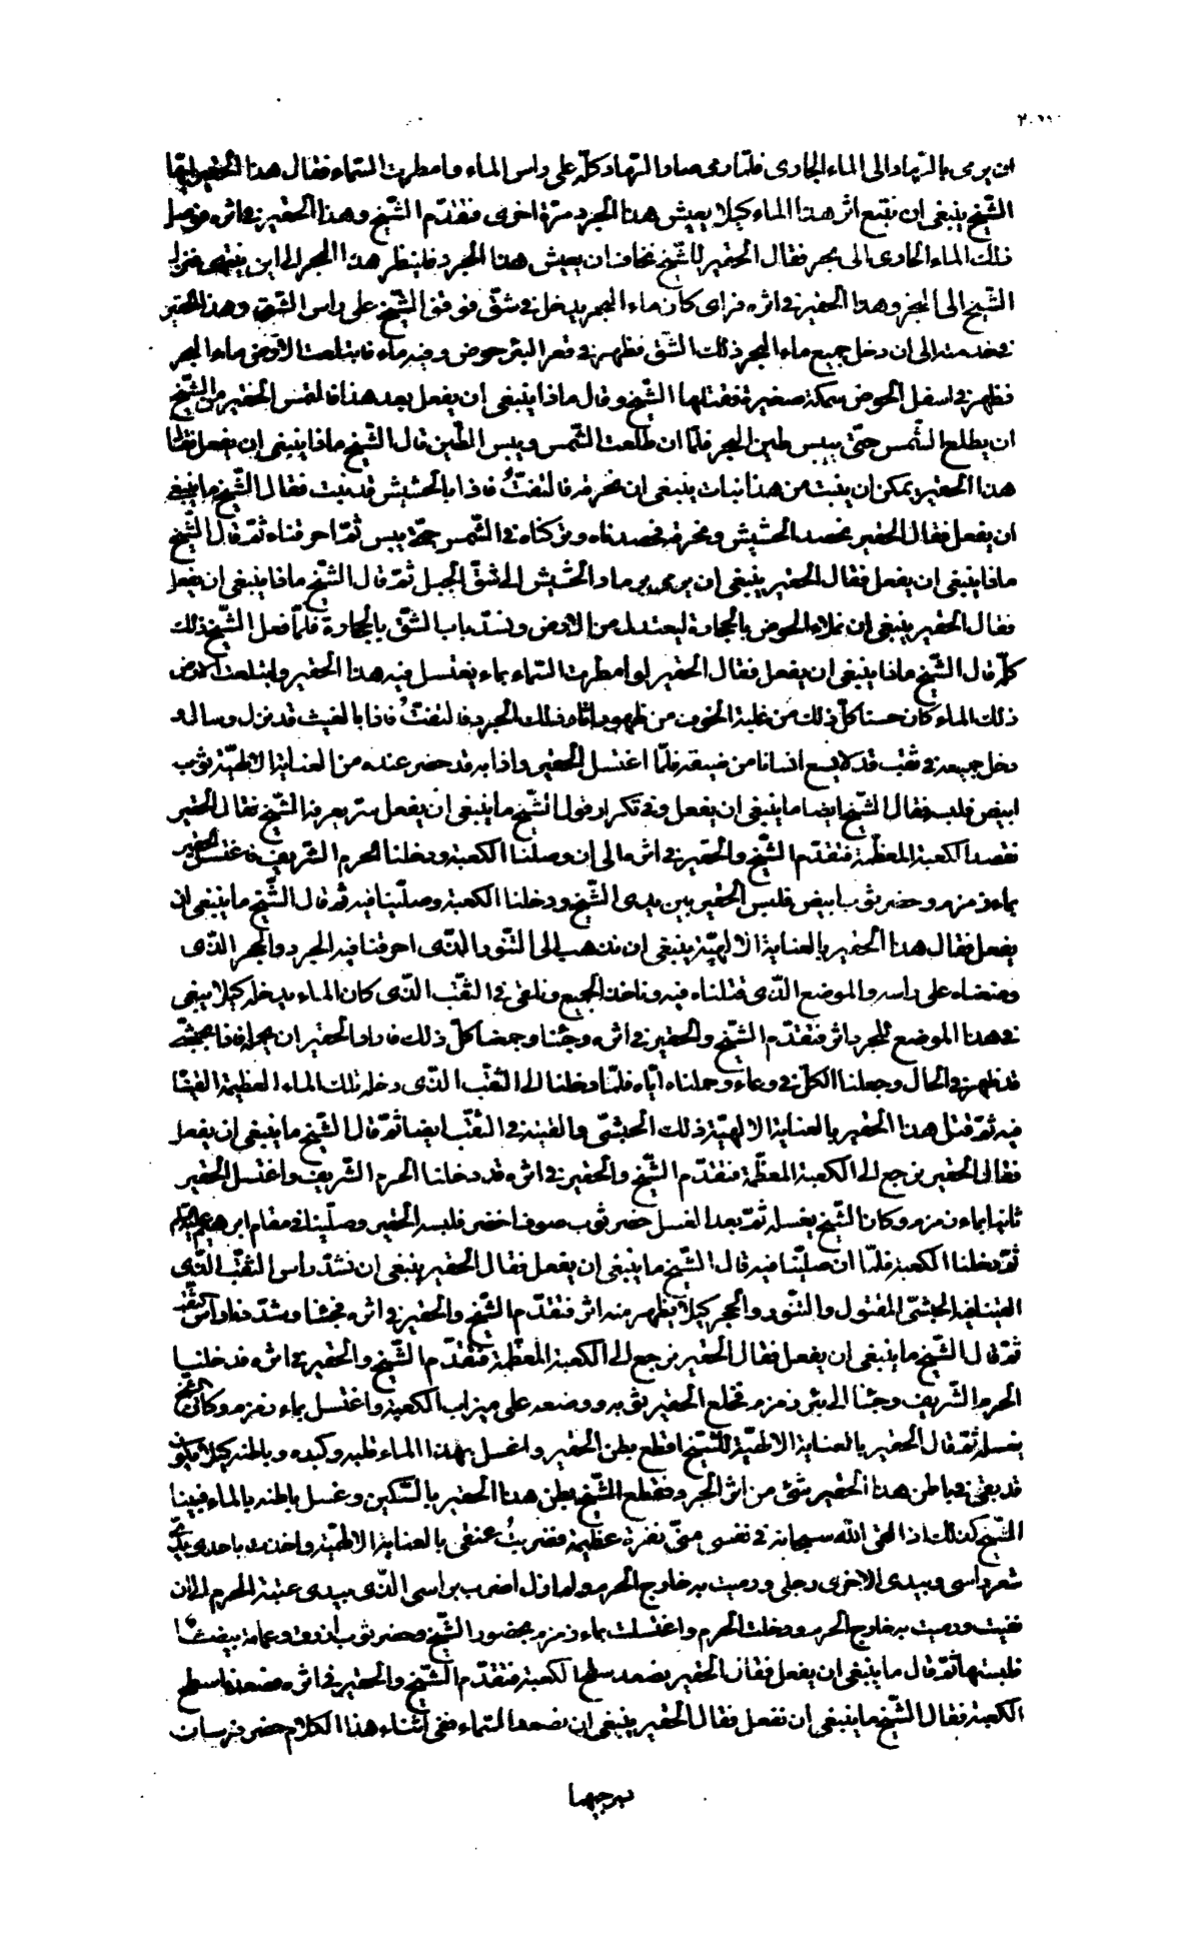 ان يرمى بالرماد الى الماء الجارى فلمّا رمى صار الرّماد كلّه على راس الماء وامطرت السّماء فقال هذا الحقير ايّها
الشّيخ ينبغى ان نتبع اثر هذا الماء كيلا يعيش هذا الجرد مرّة اخرى فتقدّم الشّيخ وهذا الحقير فى اثره فوصل
ذلك الماء الجارى الى بحر فقال الحقير للشّيخ نخاف ان يعيش هذا الجرد فلينظر هذا البحر الى اين ينتهى فنزل
الشّيخ الى البحر وهذا الحقير فى اثره فراى كان ماء البحر يدخل فى شقّ فوقف الشّيخ على راس الشّق وهذا الحقير
فى خدمته الى ان دخل جميع ماء البحر ذلك الشّق فظهر فى قعر البئر حوض وفيه ماء فابتلعت الارض ماء البحر
فظهر فى اسفل الحوض سمكة صغيرة فقتلها الشّيخ وقال ماذا ينبغى ان يفعل بعد هذا فالتمس الحقير من الشّيخ
ان يطلع الشّمس حتّى ييبس طين البحر فلمّا ان طلعت الشّمس ويبس الطّين قال الشّيخ ماذا ينبغى ان يفعل فقال
هذا الحقير يمكن ان ينبت من هذا نبات ينبغى ان نحرقه فالتفتُّ فاذا بالحشيش قد نبت فقال الشّيخ ما ينبغى
ان يفعل فقال الحقير نحصد الحشيش ونحرقه فحصدناه وتركناه فى الشّمس حتّى يبس ثمّ احرقناه ثمّ قال الشّيخ
ماذا ينبغى ان يفعل فقال الحقير ينبغى ان يرمى برماد الحشيش الى شقّ الجبل ثمّ قال الشّيخ ماذا ينبغى ان يفعل
فقال الحقير ينبغى ان نملاء الحوض بالحجارة ليعتدل من الارض ونسدّ باب الشّق بالحجارة فلمّا فعل الشّيخ ذلك
كلّه قال الشّيخ ماذا ينبغى ان يفعل فقال الحقير لو امطرت السّماء بماء يغتسل فيه هذا الحقير وابتلعت الارض
ذلك الماء كان حسنا كلّ ذلك من غلبة الخوف من ظهور اثار ذلك الجرد فالتفتُّ فاذا بالغيث قد نزل وسال و
دخل جميعه فى ثقب قد لا يسع انسانا من ضيقه فلمّا اغتسل الحقير واذا به قد حضر عنده من العناية الالهيّة ثوب
ابيض فلبسه فقال الشّيخ ايضا ما ينبغى ان يفعل وفى تكرار قول الشّيخ ما ينبغى ان يفعل سرّ يعرفه الشّيخ فقال الحقير
نقصد الكعبة المعظّمة فتقدّم الشّيخ والحقير فى اثره الى ان وصلنا الكعبة ودخلنا الحرم الشّريف فاغتسل الحقير
بماء زمزم وحضر ثوب ابيض فلبس الحقير بين يدى الشّيخ ودخلنا الكعبة وصلّينا فيه ثمّ قال الشّيخ ما ينبغى ان
يفعل فقال هذا الحقير بالعناية الالهيّة ينبغى ان نذهب الى التّنّور الذّى احرقنا فيه الجرد والحجر الذّى
وضعناه على راسه والموضع الذّى قتلناه فيه وناخذ الجميع ونلقى فى الثّقب الذّى كان الماء يدخله كيلا يبقى
فى هذا الموضع للجرد اثر فتقدّم الشّيخ والحقير فى اثره وجئنا وجمعنا كلّ ذلك فاراد الحقير ان يحمله فاذا بحبشّى
قد ظهر فى الحال وجعلنا الكلّ فى وعاء وحملناه ايّاه فلمّا وصلنا الى الثّقب الذّى دخله ذلك الماء العظيم القينا
فيه ثمّ قتل هذا الحقير بالعناية الالهيّة ذلك الحبشّى والقيته فى الثقب ايضا ثمّ قال الشّيخ ما ينبغى ان يفعل
فقال الحقير نرجع الى الكعبة المعظّمة فتقدّم الشّيخ والحقير فى اثره قد دخلنا الحرم الشّريف واغتسل الحقير
ثانيا بماء زمزم وكان الشّيخ يغسله ثمّ بعد الغسل حضر ثوب صوف اخضر فلبسه الحقير وصلّينا فى مقام ابرهيم عليه السّلام
ثمّ دخلنا الكعبة فلمّا ان صلّينا فيه قال الشّيخ ما ينبغى ان يفعل فقال الحقير ينبغى ان نشدّ راس الثقب الذّى
القينا فيه الحبشّى المقتول والتّنّور والحجر كيلا يظهر منه اثر فتقدّم الشّيخ والحقير فى اثره فجئنا وشدّدنا راس الثّقب
ثمّ قال الشّيخ ما ينبغى ان يفعل فقال الحقير نرجع الى الكعبة المعظّمة فتقدّم الشّيخ والحقير فى اثره قد دخلنا
الحرم الشّريف وجئنا الى بئر زمزم فخلع الحقير ثوبه ووضعه على ميزاب الكعبة واغتسل بماء زمزم وكان الشّيخ
يغسله ثمّ قال الحقير بالعناية الالهيّة للشّيخ اقطع بطن الحقير واغسل بهذا الماء قلبه وكبده وباطنه كيلا يكون
قد بقى فى باطن هذا الحقير شئ من اثر الجرد فقطع الشّيخ بطن هذا الحقير بالسّكين وغسل باطنه بالماء فبينا
الشّيخ كذلك اذا القى الله سبحانه فى نفسى منّى نفرة عظيمة فضربتُ عنقى بالعناية الالهيّة واخذت باحدى يدىّ
شعر راسى وبيدى الاخرى رجلى ورميت به خارج الحرم ولم ازل اضرب براسى الذّى بيدى عتبة الحرم الى ان
فنيت ورميت به خارج الحرم ودخلت الحرم واغتسلت بماء زمزم بحضور الشّيخ وحضر ثوب ازرق وعمامة بيضاء
فلبستها ثمّ قال ما ينبغى ان يفعل فقال الحقير نصعد سطح الكعبة فتقدّم الشّيخ والحقير فى اثره فصعدنا سطح
الكعبة فقال الشّيخ ما ينبغى ان نفعل فقال الحقير ينبغى ان نصعد السّماء ففى اثناء هذا الكلام حضر فرسان